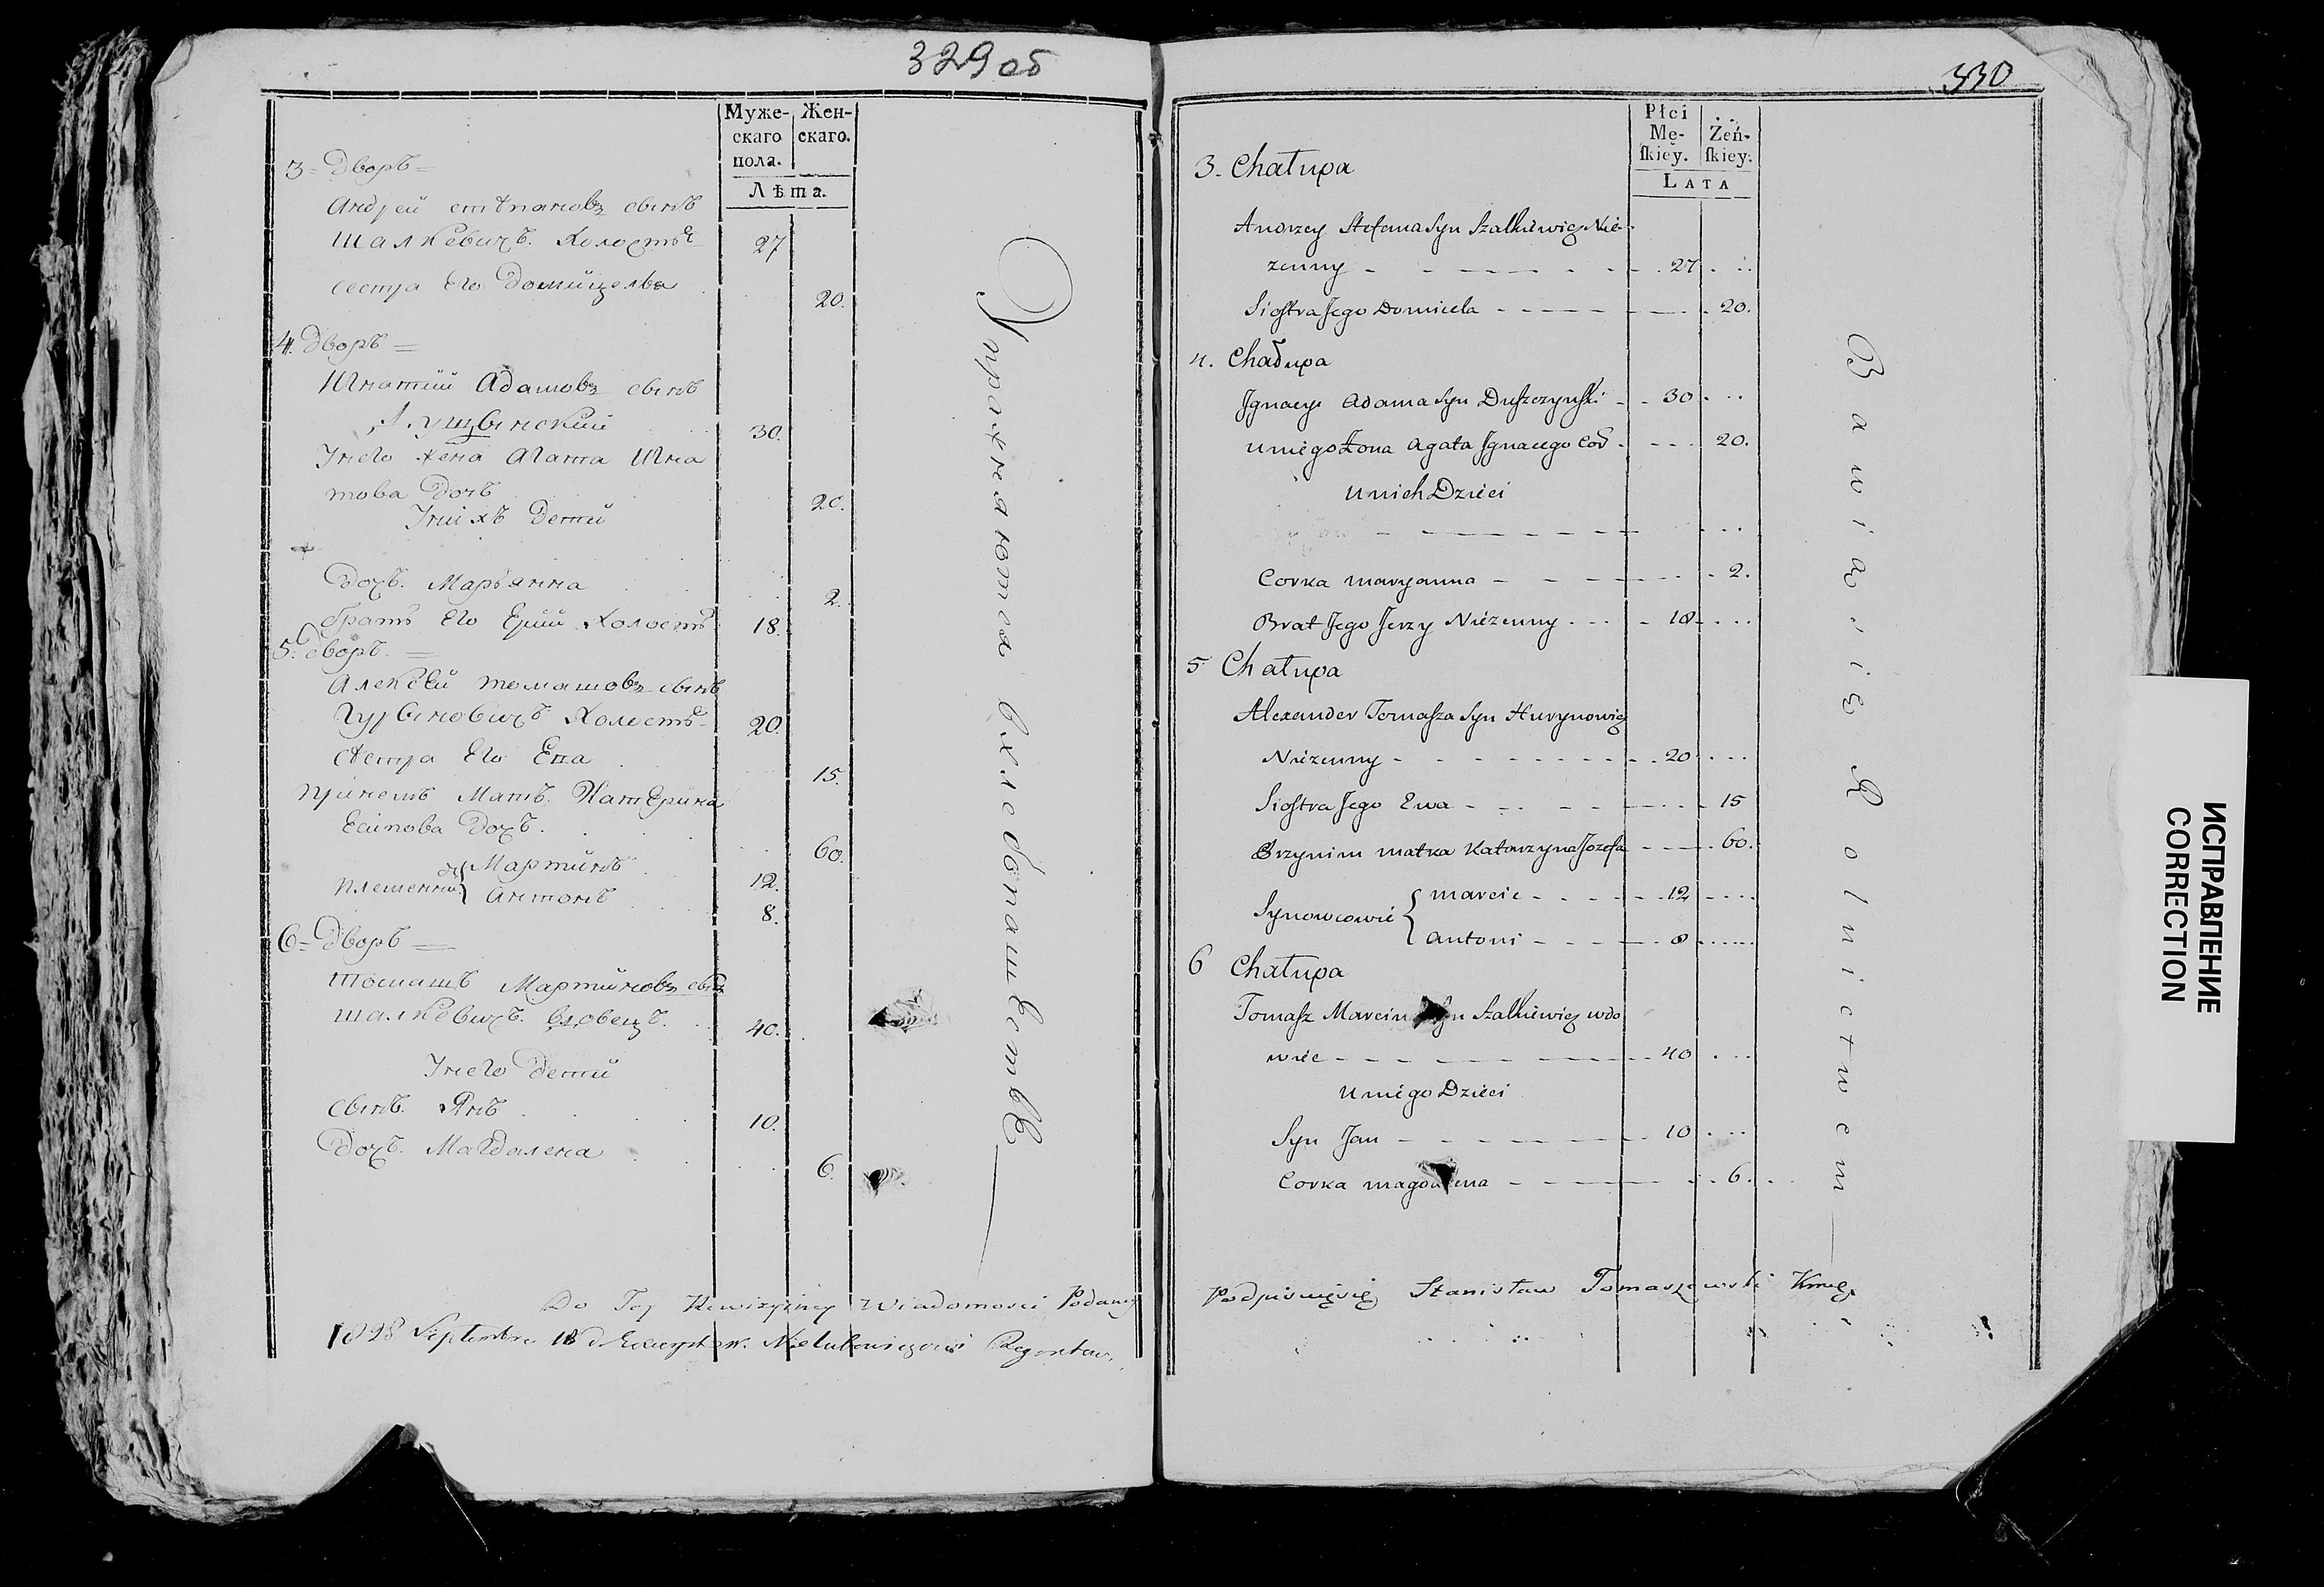 329 об
Муже-
скаго
пола.
Жен-
скаго.
Лѣта.
3 = Дворъ =
Андрей степановъ сынъ
Шалкевичъ. Холостъ 27
сестра Его Домицелва 20.
4. Дворъ =
Игнатий Адамовъ сынъ
Душчинский 30.
Унего жена Агата Игна
това Дочъ 20.
Унихъ Дети
Дочъ. Марьянна 2.
братъ Его Ерий Холостъ 18.
5. Дворъ. =
Алексей томашовъ сынъ
Гурыновичъ Холостъ 20.
сестра Его Ева 15.
принемъ Матъ. Катерина
Есипова Дочъ. 60.
племенники { Мартинъ 12.
Антонъ 8.
6 = Дворъ =
Томашъ Мартиновъ сынъ
Шалкевичъ. вдовецъ. 40.
Унего Дети
сынъ. Янъ 10.
Дочъ. Магдалена 6.
Упражняются вхлебопашестве
Do Tey Rewizyiney Wiadomosci Podaney
1828 Septembra 18 d
330
Płci
Mę-
ſkiey.
Żeń-
ſkiey.
LATA
3. Chałupa
Andrzey Stefana Syn Szalkiewicz Nie-
żenny - - - 27
Siostra Jego Domicela - - - 20.
4. Chałupa
Jgnacy Adama Syn Duszczynski - 30
u niego Żona Agata Jgnacego Cor - - - 20.
u nich Dzieci
Corka Maryanna - - - 2.
Brat Jego Jerzy Nieżenny - - - 18
5 Chałupa
Alexander Tomasza Syn Hurynowicz
Nieżenny - - - 20
Siostra Jego Ewa - - - 15
Przynim matka Katarzyna Jozefa - - - 60.
Synowcowie { Marcin - - - 12
Antoni - - - 8
6 Chałupa
Tomasz Marcina Syn Szalkiewicz wdo
wiec - - - 40
u niego Dzieci
Syn Jan - - - 10
Corka Magdalena - - - 6.
Bawią się Rolnictwem
Podpisuię się Stanisław Tomaszewski
ИСПРАВЛЕНИЕ
CORRECTION